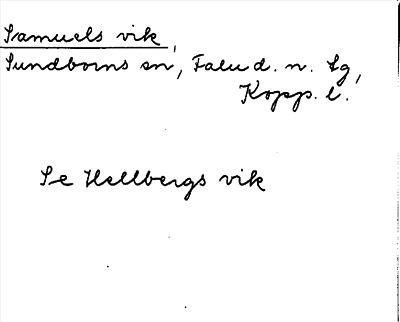 Samuels vik,
Sundborns sn, Falu d. n. Lg,
Kopp. l.
Se Hellbergs vik